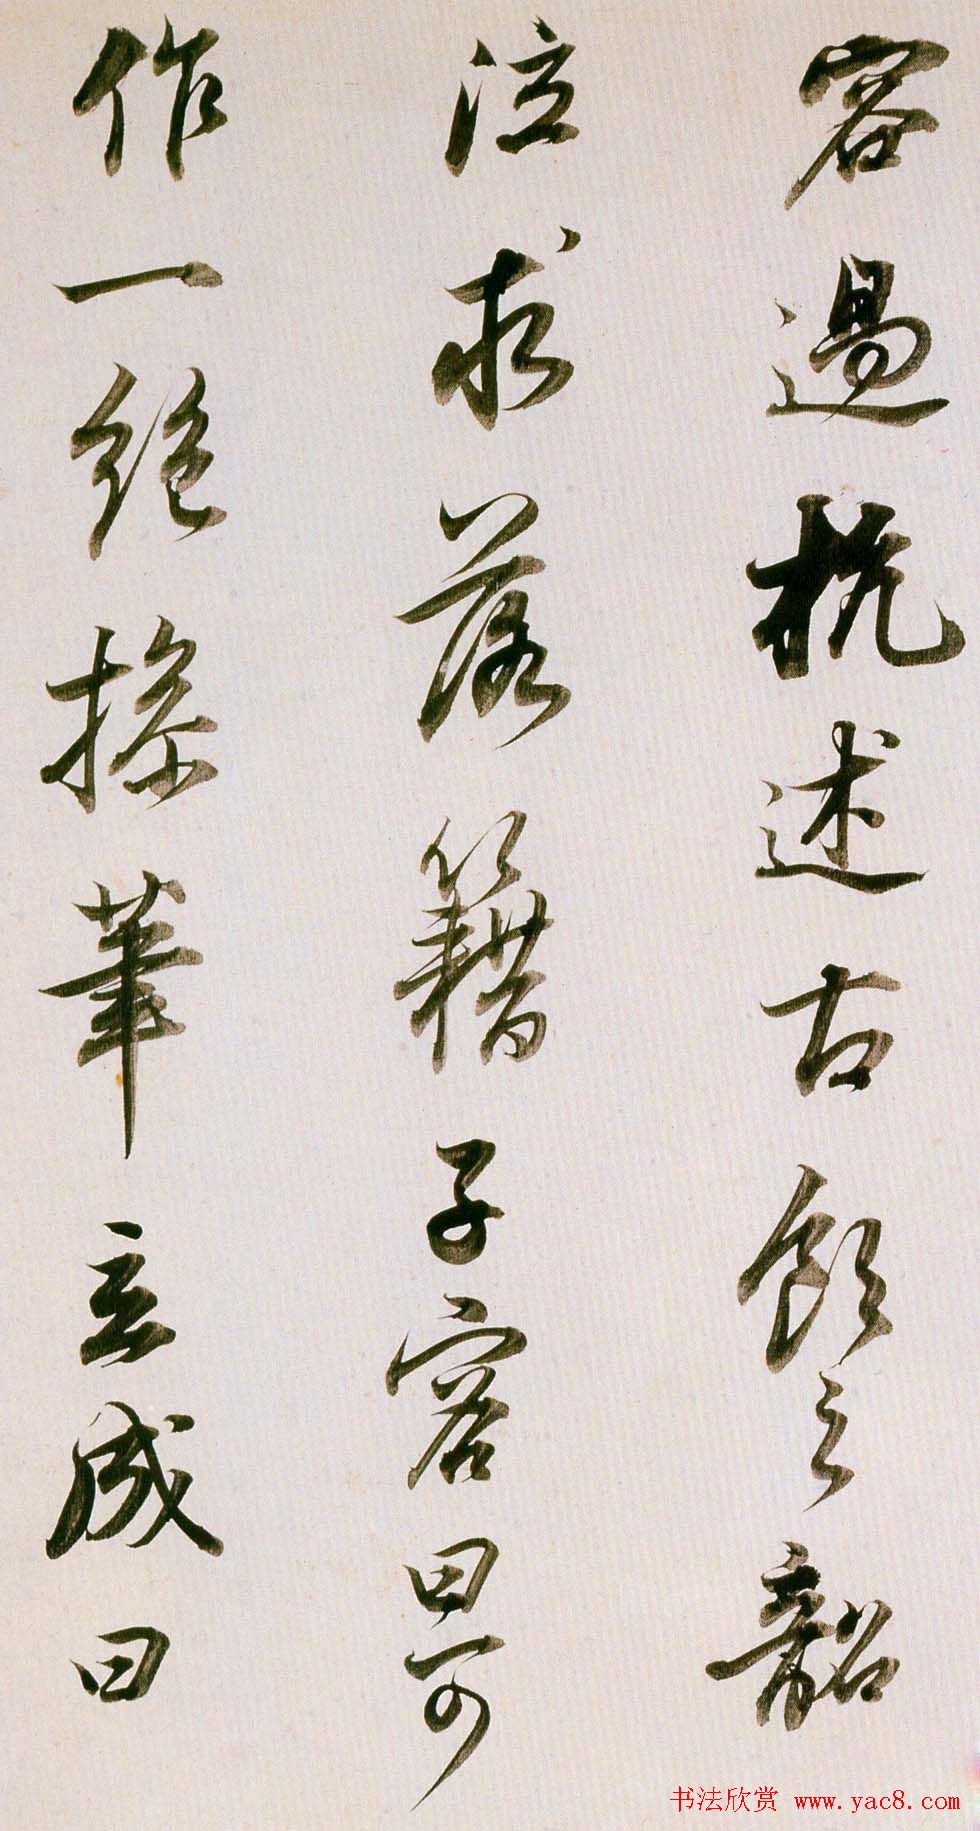 容過杭述古飲之韶
泣求落籍子容曰可
作一絶援筆立成曰
书法欣赏 www.yac8.com